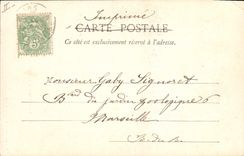 Imprimé
CARTE POSTALE
Ce côté est exclusivement réservé à l'adresse.
Monsieur Gaby Signoret
Bd du jardin zoologique 6
Marseille